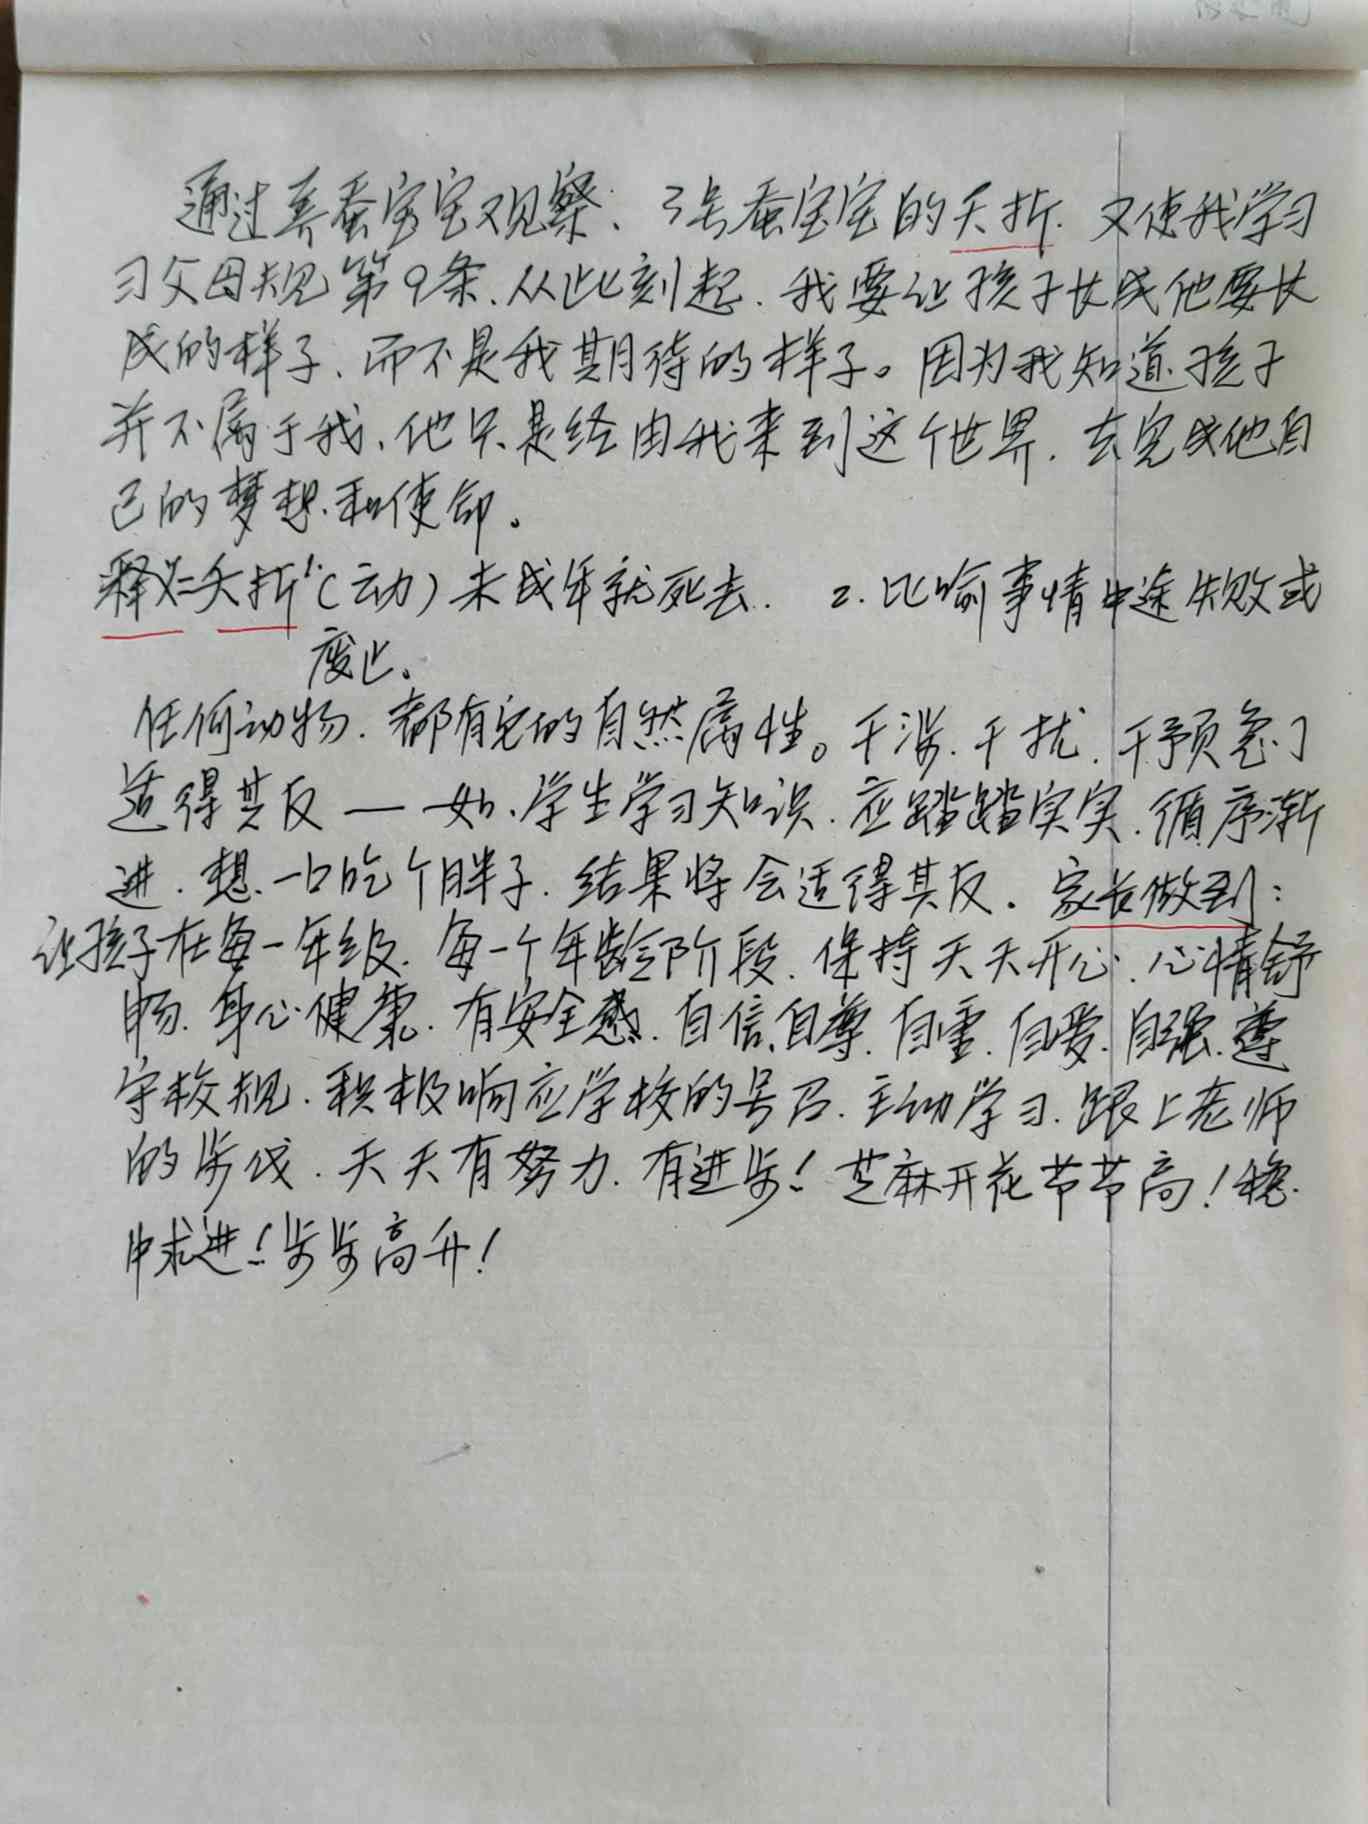 通过养蚕宝宝观察、3号蚕宝宝的夭折.又使我学习
习父母规第9条、从此刻起.我要让孩子长成他要长
成的样子、而不是我期待的样子。因为我知道.孩子
并不属于我、他只是经由我来到这个世界.去完成他自
己的梦想.和使命。
释义=夭折1.(动)未成年就死去. 2.比喻事情中途失败或
废止。
任何动物.都有它的自然属性。干涉.干扰.干预急了
适得其反—如.学生学习知识.应踏踏实实.循序渐
进.想.一口吃个胖子.结果将会适得其反.家长做到:
让孩子在每一年级.每一个年龄阶段.保持天天开心.心情舒
畅.身心健康.有安全感.自信.自尊.自重.自爱.自强.遵
守校规.积极响应学校的号召.主动学习.跟上老师
的步伐.天天有努力.有进步!芝麻开花节节高!稳.
中求进!步步高升!